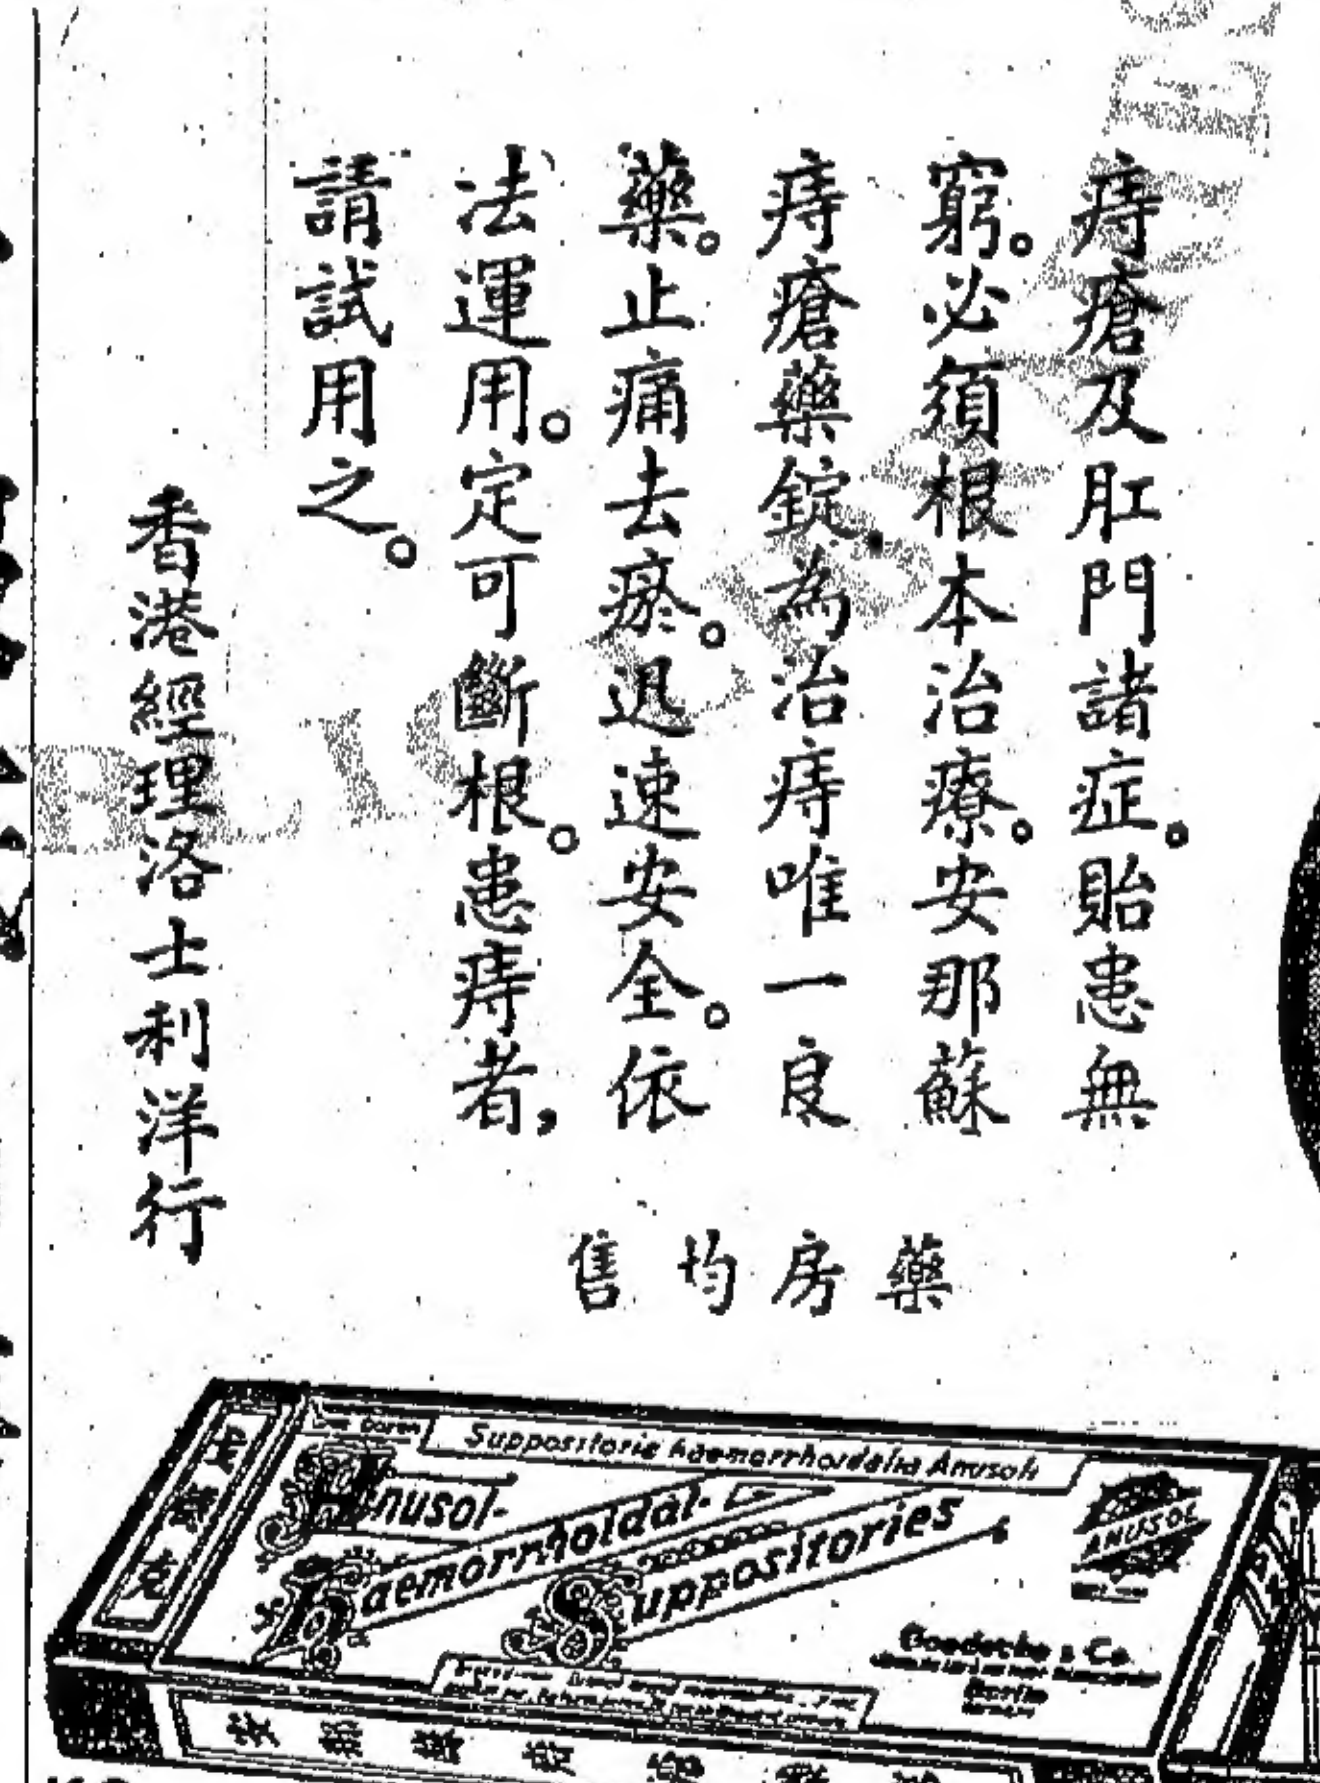 痔瘡及肛門諸症。貽患無
窮。必須根本治療。安那蘇
痔瘡藥錠.為治痔唯一良
藥。止痛去瘀。迅速安全。依
法運用。定可斷根。患痔者,
請試用之。
香港經理洛士利洋行
藥房均售
Suppositoria haemorrhoidalia Anusoli
Anusol-
Haemorrhoidal-
Suppositories
ANUSOL
Goedecke & Co.
Berlin